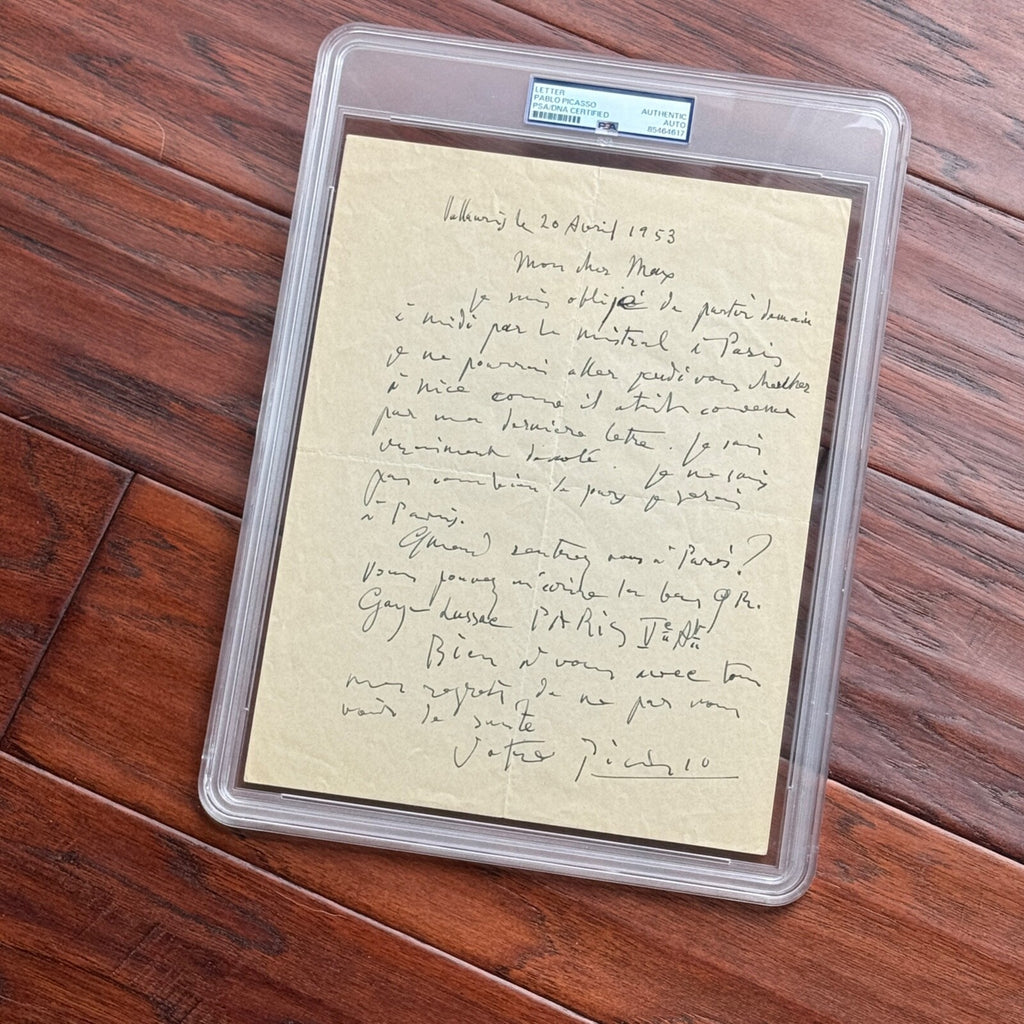 LETTER
PABLO PICASSO
PSA/DNA CERTIFIED
AUTHENTIC
AUTO
85464617
PSA
Vallauris le 20 Avril 1953
Mon cher Max
je suis obligé de partir demain
à midi par le mistral à Paris
je ne pourrai aller jeudi vous
à Nice comme il
par ma dernière letre. Je suis
vraiment désolé. je ne sais
pas combien de jours je serai
à Paris.
Quand rentrez vous à Paris?
vous pouvez m'écrire
Gay-Lussac PARIS Ve Art
Bien à vous avec tous
mes regrets de ne pas vous
voir de suite
Votre Picasso